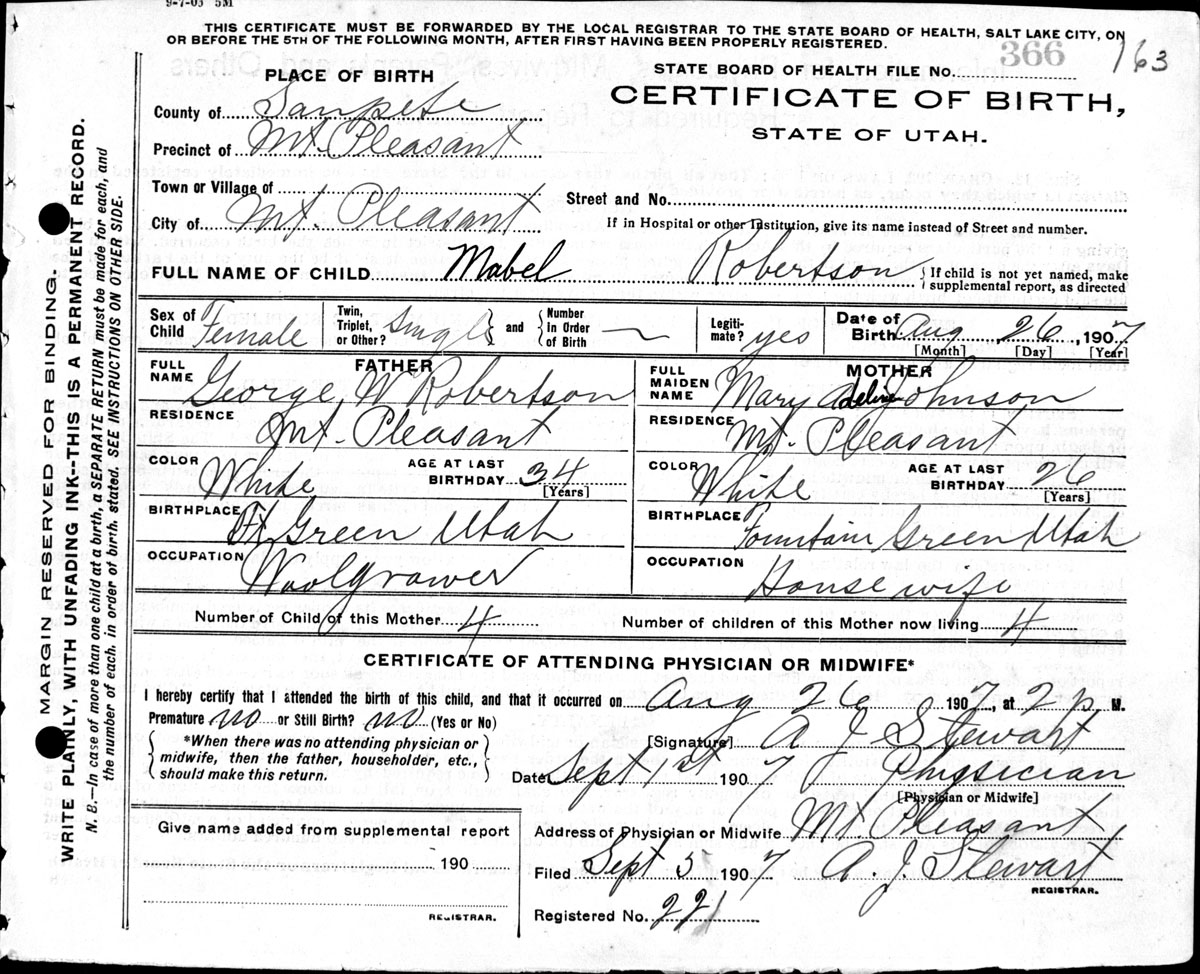 9-7-05 5M
THIS CERTIFICATE MUST BE FORWARDED BY THE LOCAL REGISTRAR TO THE STATE BOARD OF HEALTH, SALT LAKE CITY, ON
OR BEFORE THE 5TH OF THE FOLLOWING MONTH, AFTER FIRST HAVING BEEN PROPERLY REGISTERED.
366 163
PLACE OF BIRTH
STATE BOARD OF HEALTH FILE No.
County of Sanpete
CERTIFICATE OF BIRTH,
Precinct of Mt. Pleasant
STATE OF UTAH.
Town or Village of
Street and No.
City of Mt. Pleasant
If in Hospital or other Institution, give its name instead of Street and number.
FULL NAME OF CHILD Mabel Robertson { If child is not yet named, make
supplemental report, as directed
Sex of Child Female
Twin, Triplet, or Other? Single } and { Number In Order of Birth —
Legiti-mate? yes
Date of Birth Aug 26, 1907
[Month] [Day] [Year]
FATHER
FULL NAME George W Robertson
RESIDENCE Mt. Pleasant
COLOR White AGE AT LAST BIRTHDAY 34
[Years]
BIRTHPLACE Ft Green Utah
OCCUPATION Woolgrower
MOTHER
FULL MAIDEN NAME Mary Adeline Johnson
RESIDENCE Mt. Pleasant
COLOR White AGE AT LAST BIRTHDAY 26
[Years]
BIRTHPLACE Fountain Green Utah
OCCUPATION Housewife
Number of Child of this Mother 4 Number of children of this Mother now living 4
CERTIFICATE OF ATTENDING PHYSICIAN OR MIDWIFE*
I hereby certify that I attended the birth of this child, and that it occurred on Aug 26 1907, at 2 p. M.
Premature no or Still Birth? no (Yes or No)
{ *When there was no attending physician or
midwife, then the father, householder, etc.,
should make this return. }
[Signature] A J Stewart
Date Sept 1st 1907 Physician
[Physician or Midwife]
Give name added from supplemental report
190
REGISTRAR.
Address of Physician or Midwife Mt. Pleasant
Filed Sept 5 1907 A. J. Stewart
REGISTRAR.
Registered No. 221
MARGIN RESERVED FOR BINDING.
WRITE PLAINLY, WITH UNFADING INK--THIS IS A PERMANENT RECORD.
N. B.—In case of more than one child at a birth, a SEPARATE RETURN must be made for each, and
the number of each, in order of birth, stated. SEE INSTRUCTIONS ON OTHER SIDE.